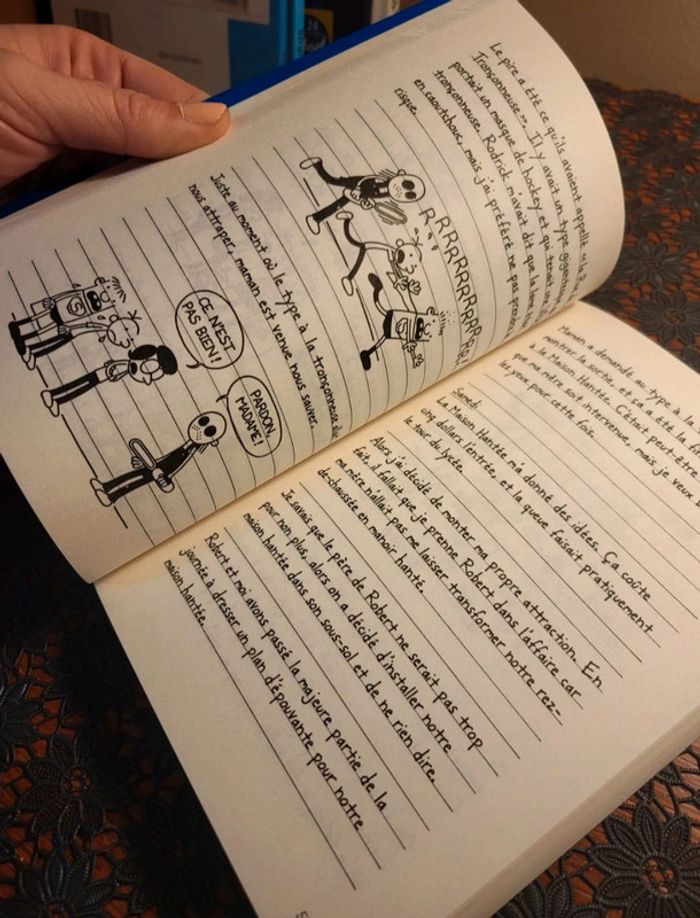 Le pire a été ce qu'ils avaient appelé « la
Tronçonneuse ». Il y avait un type
portait un masque de hockey et qui tenait
tronçonneuse. Rodrick m'avait dit que la
en caoutchouc, mais j'ai préféré ne pas prendre
risque.
RRRRRRRRRRRRR
R
Juste au moment où le type à la tronçonneuse
nous attraper, maman est venue nous sauver.
CE N'EST
PAS BIEN!
PARDON,
MADAME!
Maman a demandé au type à la
montrer la sortie, et ça a été la
à la Maison Hantée. C'était
que ma mère soit intervenue, mais je veux
les yeux pour cette fois.
Samedi
La Maison Hantée m'a donné des idées. Ça coûte
cinq dollars l'entrée, et la queue faisait pratiquement
le tour du lycée.
Alors j'ai décidé de monter ma propre attraction. En
fait, il fallait que je prenne Robert dans l'affaire car
ma mère n'allait pas me laisser transformer notre rez-
de-chaussée en manoir hanté.
Je savais que le père de Robert ne serait pas trop
pour non plus, alors on a décidé d'installer notre
maison hantée dans son sous-sol et de ne rien dire.
Robert et moi avons passé la majeure partie de la
journée à dresser un plan d'épouvante pour notre
maison hantée.